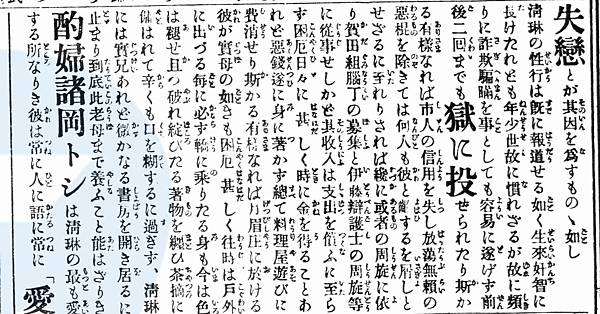 失戀とが其因を爲すものゝ如し
淸琳の性行は旣に報道せる如く生來奸智に
長けたれども年少世故に慣れざるが故に頻
りに詐欺騙瞞を事としても容易に遂げず前
後二回までも獄に投せられたり斯か
る有樣なれば市人の信用を失し放蕩無賴の
惡棍を除きては何人も彼と齒するを屑しと
せざるに至れりされば纔に或者の周旋に依
り賀田組脳丁の募集と伊藤辯護士の周旋等
に從事せしかど其收入は支出を償ふに至ら
ず困厄日々に甚しく時に金を得ることあ
れど惡錢遂に身に着かず總て料理屋遊びに
費消せり斯かる有樣なれば月眉庄に於ける
彼が實母の如きも困厄甚しく往時は戶外
に出づる每に必ず轎に乘りたる身も今は色
は褪せ且つ破れ綻びたる著物を纒ひ茶摘に
傭はれて辛くも口を糊するに過ぎず、淸琳
には實兄あれど微かなる書房を開き居るに
止まり到底此老母まで養ふこと能はざりき
酌婦諸岡トシは淸琳の最も愛
する所なりき彼は常に人に語に常に「愛